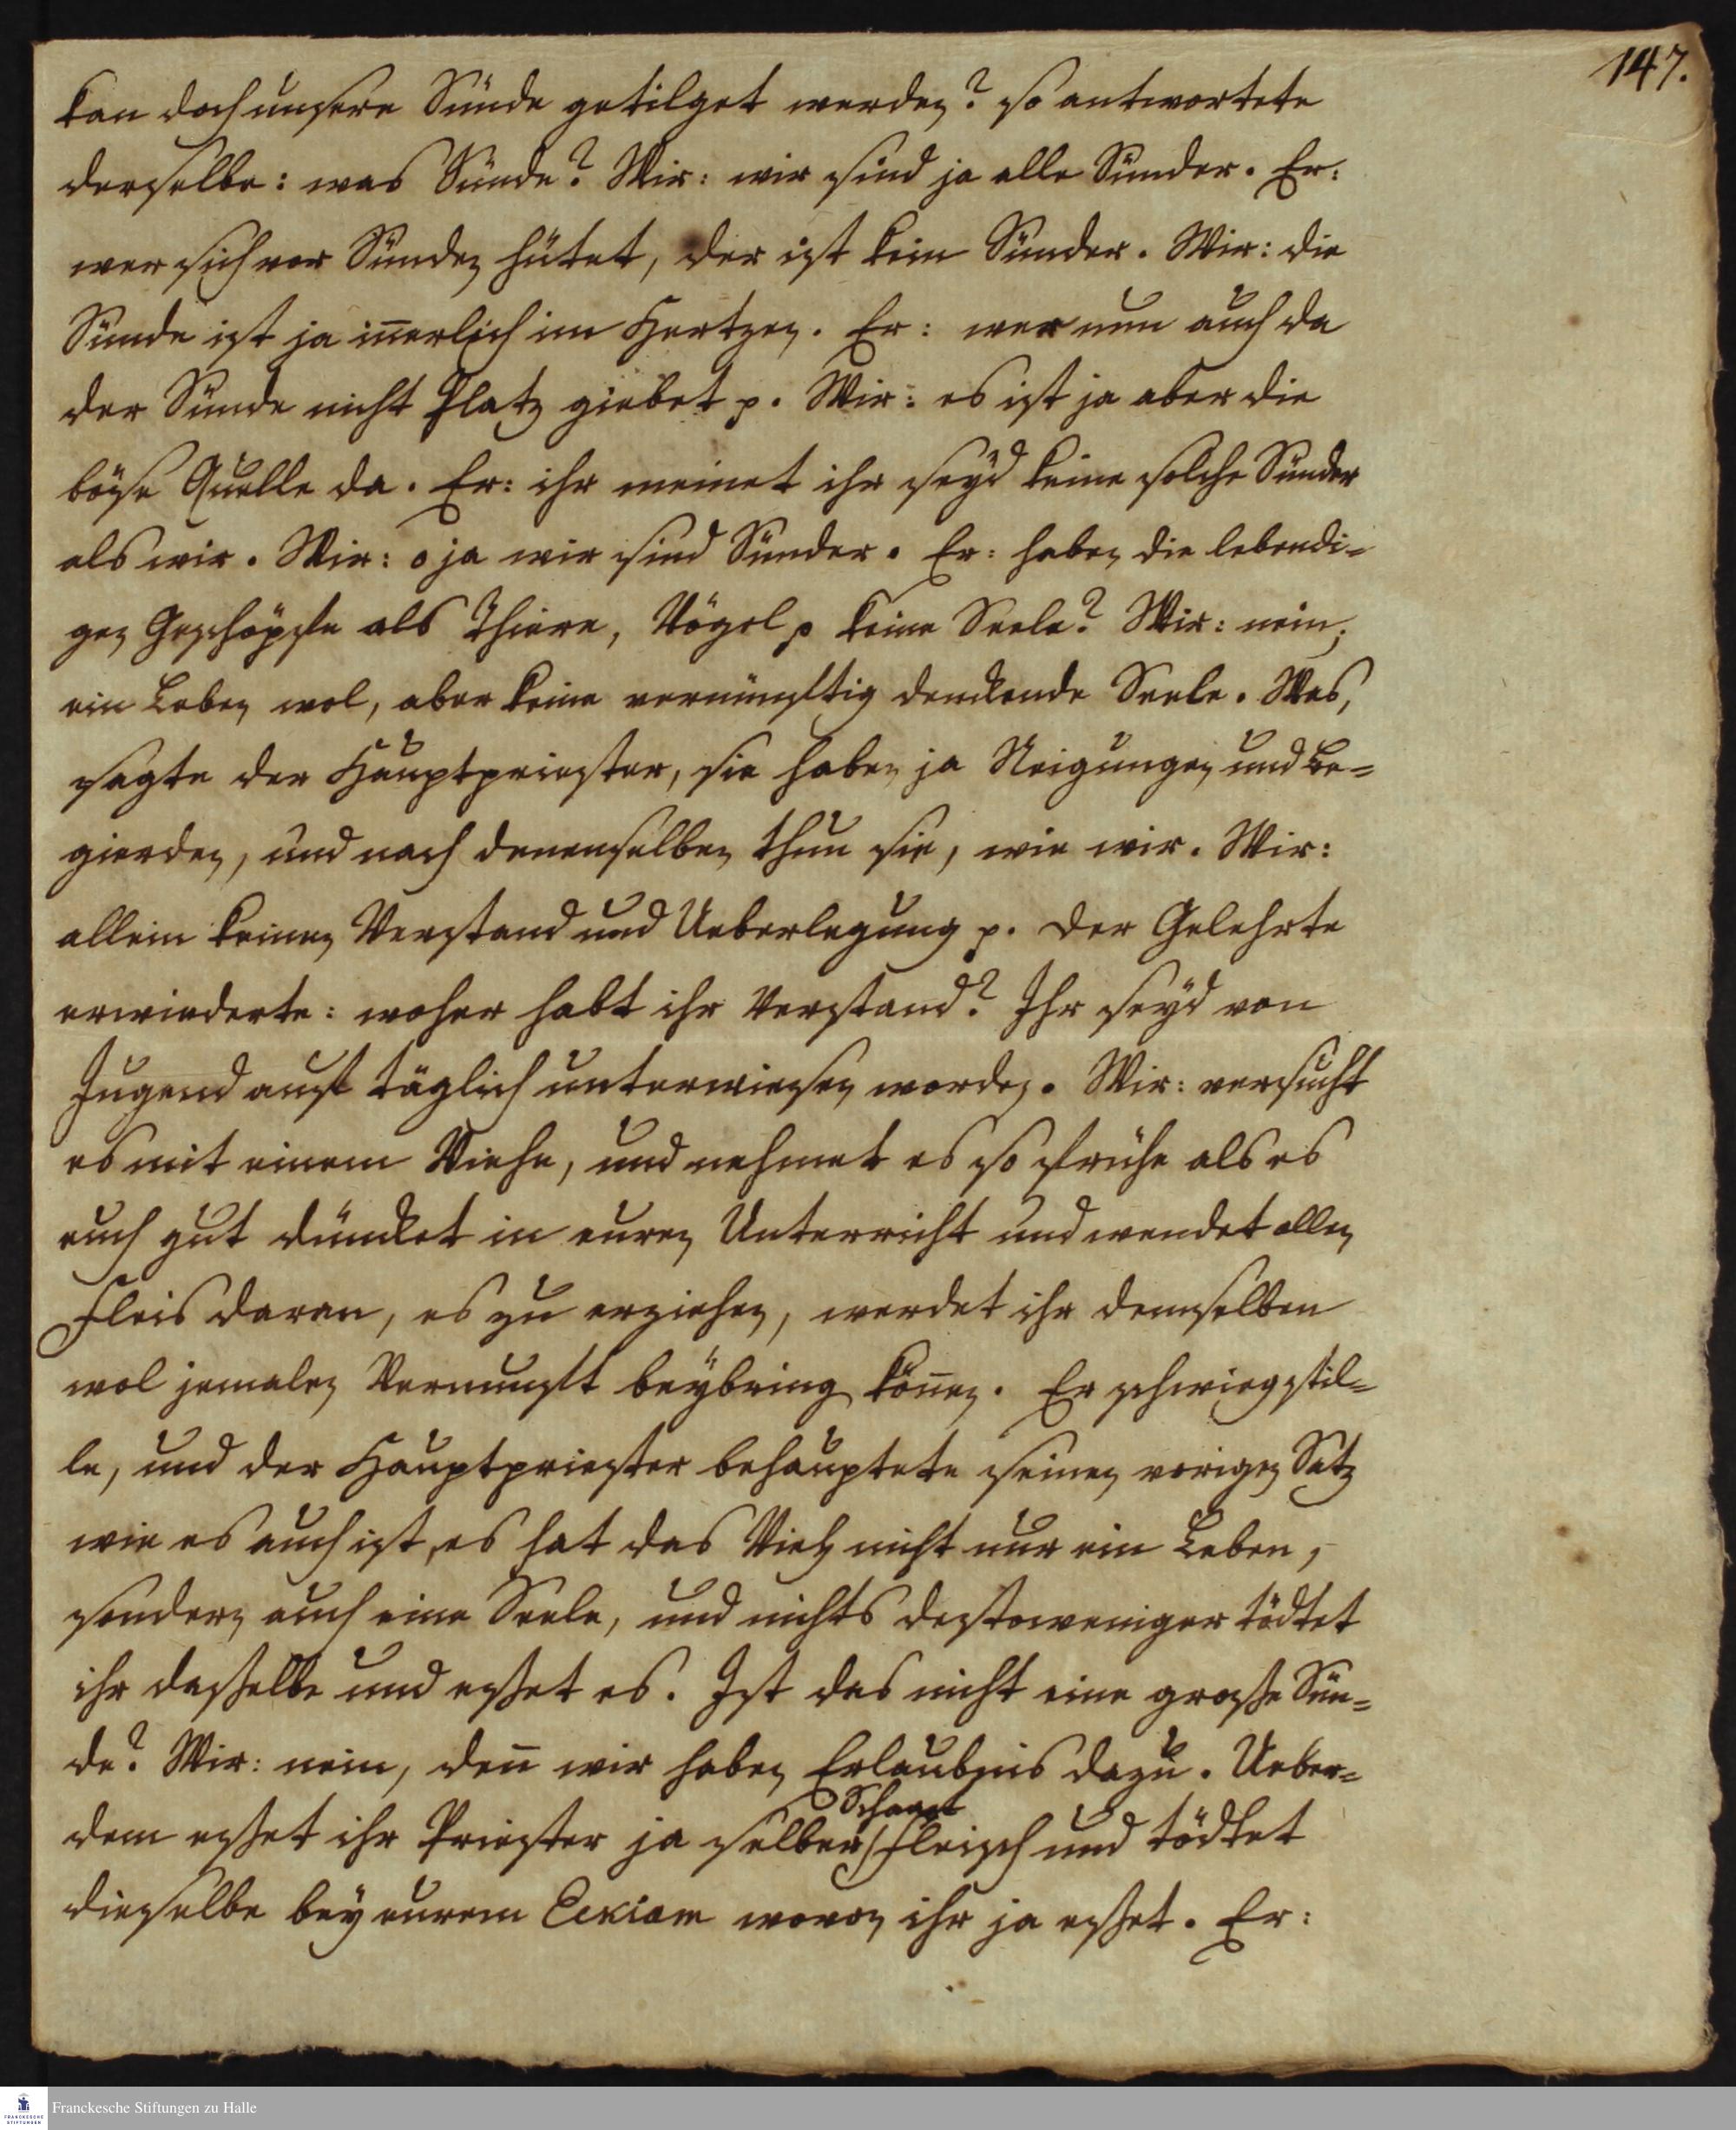 147.
kan doch unsere Sünde getilget werden? so antwortete
derselbe: was Sünde? Wir: wir sind ja alle Sünder. Er:
wer sich vor Sünden hütet, der ist kein Sünder. Wir: die
Sünde ist ja inerlich im Hertzen. Er: wer nun auch da
der Sünde nicht Platz giebet p. Wir: es ist ja aber die
böse Quelle da. Er: ihr meinet ihr seyd keine solche Sünder
als wir. Wir: o ja wir sind Sünder. Er: haben die lebendi-
gen Geschöpfe als Thiere, Vögel p keine Seele? Wir: nein;
ein Leben wol, aber keine vernünftig denckende Seele. Was,
sagte der Hauptpriester, sie haben ja Neigungen und Be-
gierden, und nach denenselben thun sie, wie wir. Wir:
allein keinen Verstand und Ueberlegung p. Der Gelehrte
erwiederte: woher habt ihr Verstand? Ihr seyd von
Jugend auf täglich unterwiesen worden. Wir: versucht
es mit einem Viehe, und nehmet es so frühe als es
euch gut düncket in euren Unterricht und wendet allen
Fleis daran, es zu erziehen, werdet ihr demselben
wol jemalen Vernunft beybring könen. Er schwieg stil-
le, und der Hauptpriester behauptete seinen vorigen Satz
wie es auch ist, es hat das Vieh nicht nur ein Leben,
sondern auch eine Seele, und nichts destoweniger tödtet
ihr dasselbe und esset es. Ist das nicht eine grosse Sün-
de? Wir: nein, den wir haben Erlaubnis dazu. Ueber-
Schaaf
dem esset ihr Priester ja selber Fleisch und tödtet
dieselbe bey eurem Eekiam wovon ihr ja esset. Er:
Franckesche Stiftungen zu Halle
FRANCKESCHE
STIFTUNGEN